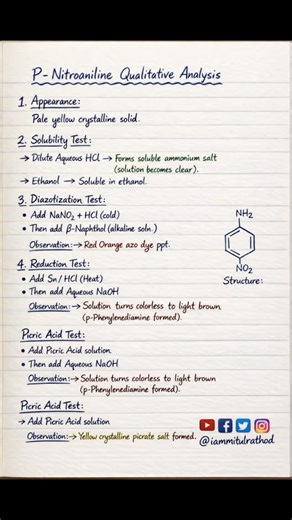 P-Nitroaniline Qualitative Analysis
1. Appearance:
Pale yellow crystalline solid.
2. Solubility Test:
→ Dilute Aqueous HCl → Forms soluble ammonium salt
(solution becomes clear).
→ Ethanol → Soluble in ethanol.
3. Diazotization Test:
• Add NaNO₂ + HCl (cold)
• Then add β-Naphthol (alkaline soln.)
Observation:→ Red Orange azo dye ppt.
NH₂
NO₂
Structure:
4. Reduction Test:
• Add Sn/HCl (Heat)
• Then add Aqueous NaOH
Observation:→ Solution turns colorless to light brown
(p-Phenylenediamine formed).
Picric Acid Test:
• Add Picric Acid solution
• Then add Aqueous NaOH
Observation:→ Solution turns colorless to light brown
(p-Phenylenediamine formed).
Picric Acid Test:
→ Add Picric Acid solution
Observation:→ Yellow crystalline picrate salt formed.
@iammitulrathod